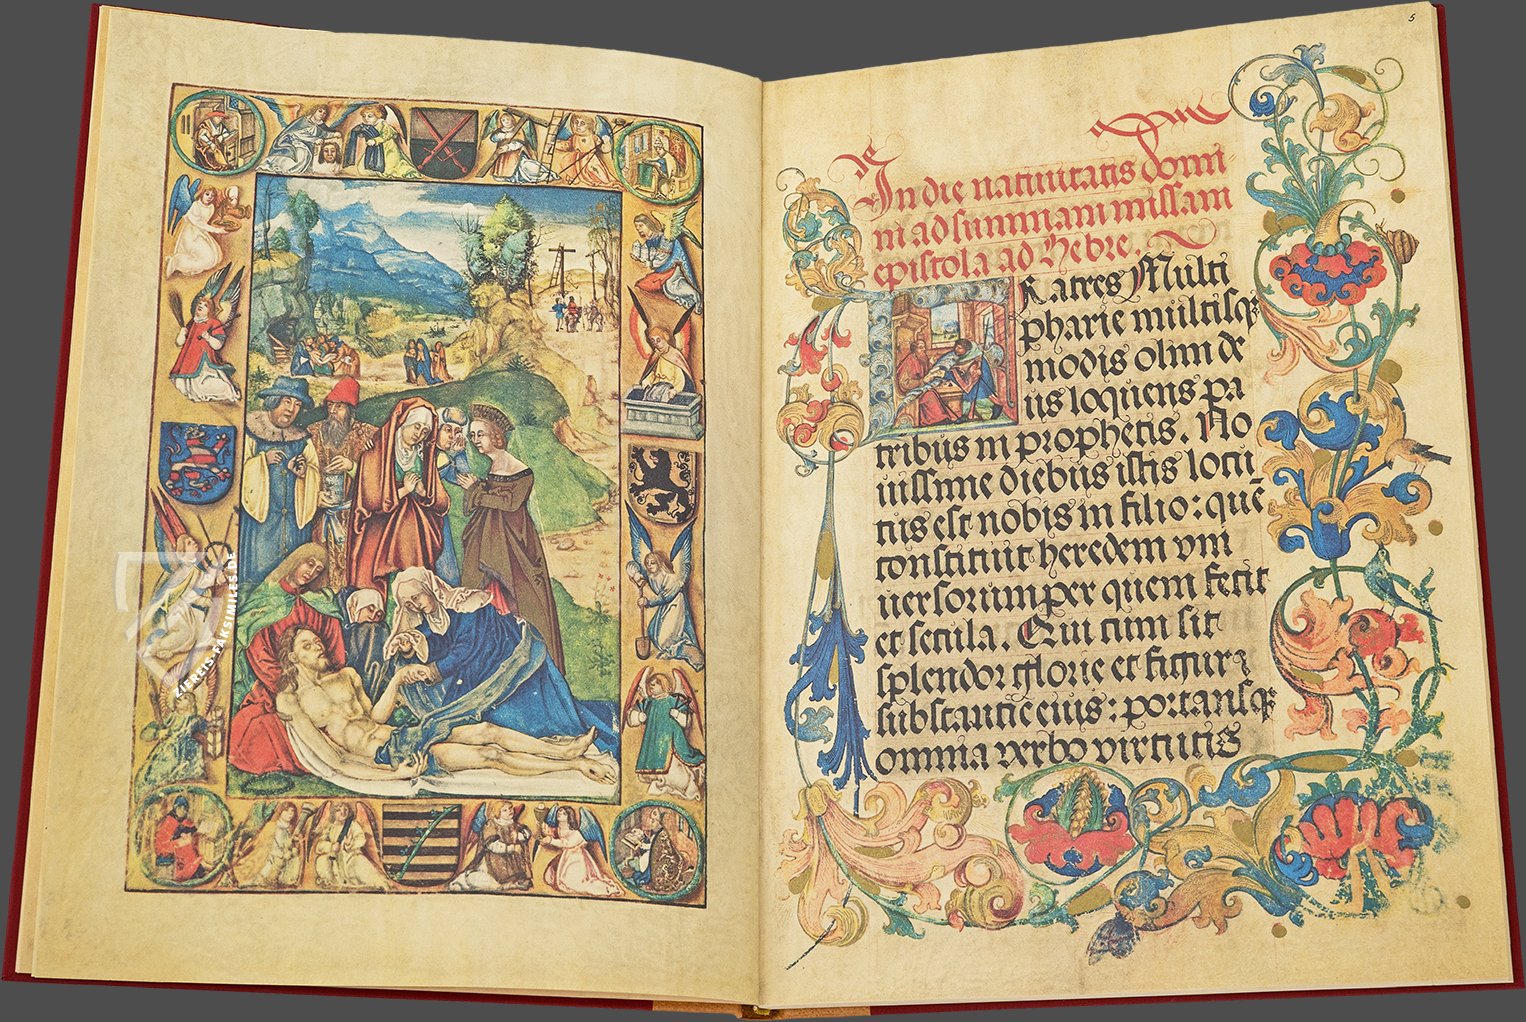 5
In die nativitatis domi-
ni ad summam missam
epistola ad Hebre.
Fratres Multi
pharie multisqz
modis olim de
us loquens pa
tribus in prophetis. No
uissime diebus istis locu
tus est nobis in filio: quē
constituit heredem vni
uersorum per quem fecit
et secula. Qui cum sit
splendor glorie et figura
substantie eius: portansqz
omnia verbo virtutis
ZIEREIS-FAKSIMILES.DE